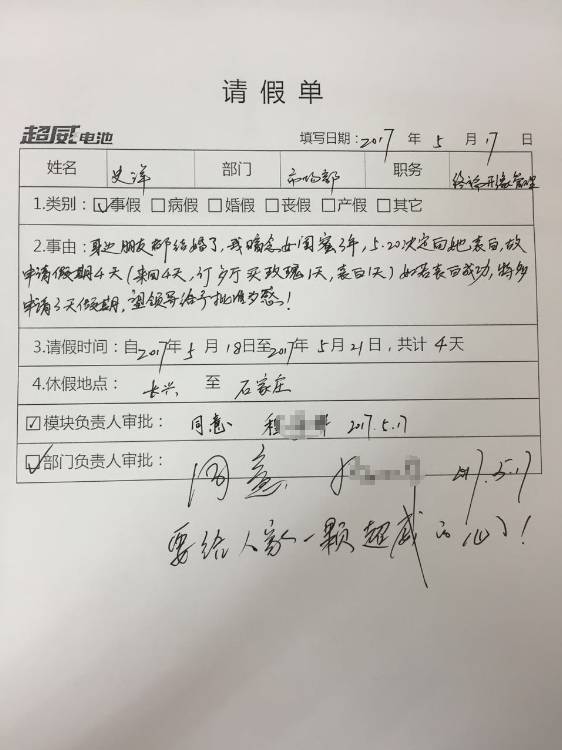 请假单
超威电池
填写日期:2017年5月17日
姓名 史洋 部门 市场部 职务 终端形象管理
1.类别:☑事假 □病假 □婚假 □丧假 □产假 □其它
2.事由:身边朋友都结婚了,我暗恋女闺蜜3年,5.20决定向她表白,故
申请假期4天(来回4天,订餐厅买玫瑰1天,表白1天)如若表白成功,将多
申请3天假期,望领导给予批准为感!
3.请假时间:自2017年5月18日至2017年5月21日,共计4天
4.休假地点:长兴 至 石家庄
☑模块负责人审批:同意 程 2017.5.17
☑部门负责人审批:同意. 17.5.17
要给人家一颗超威的心了!